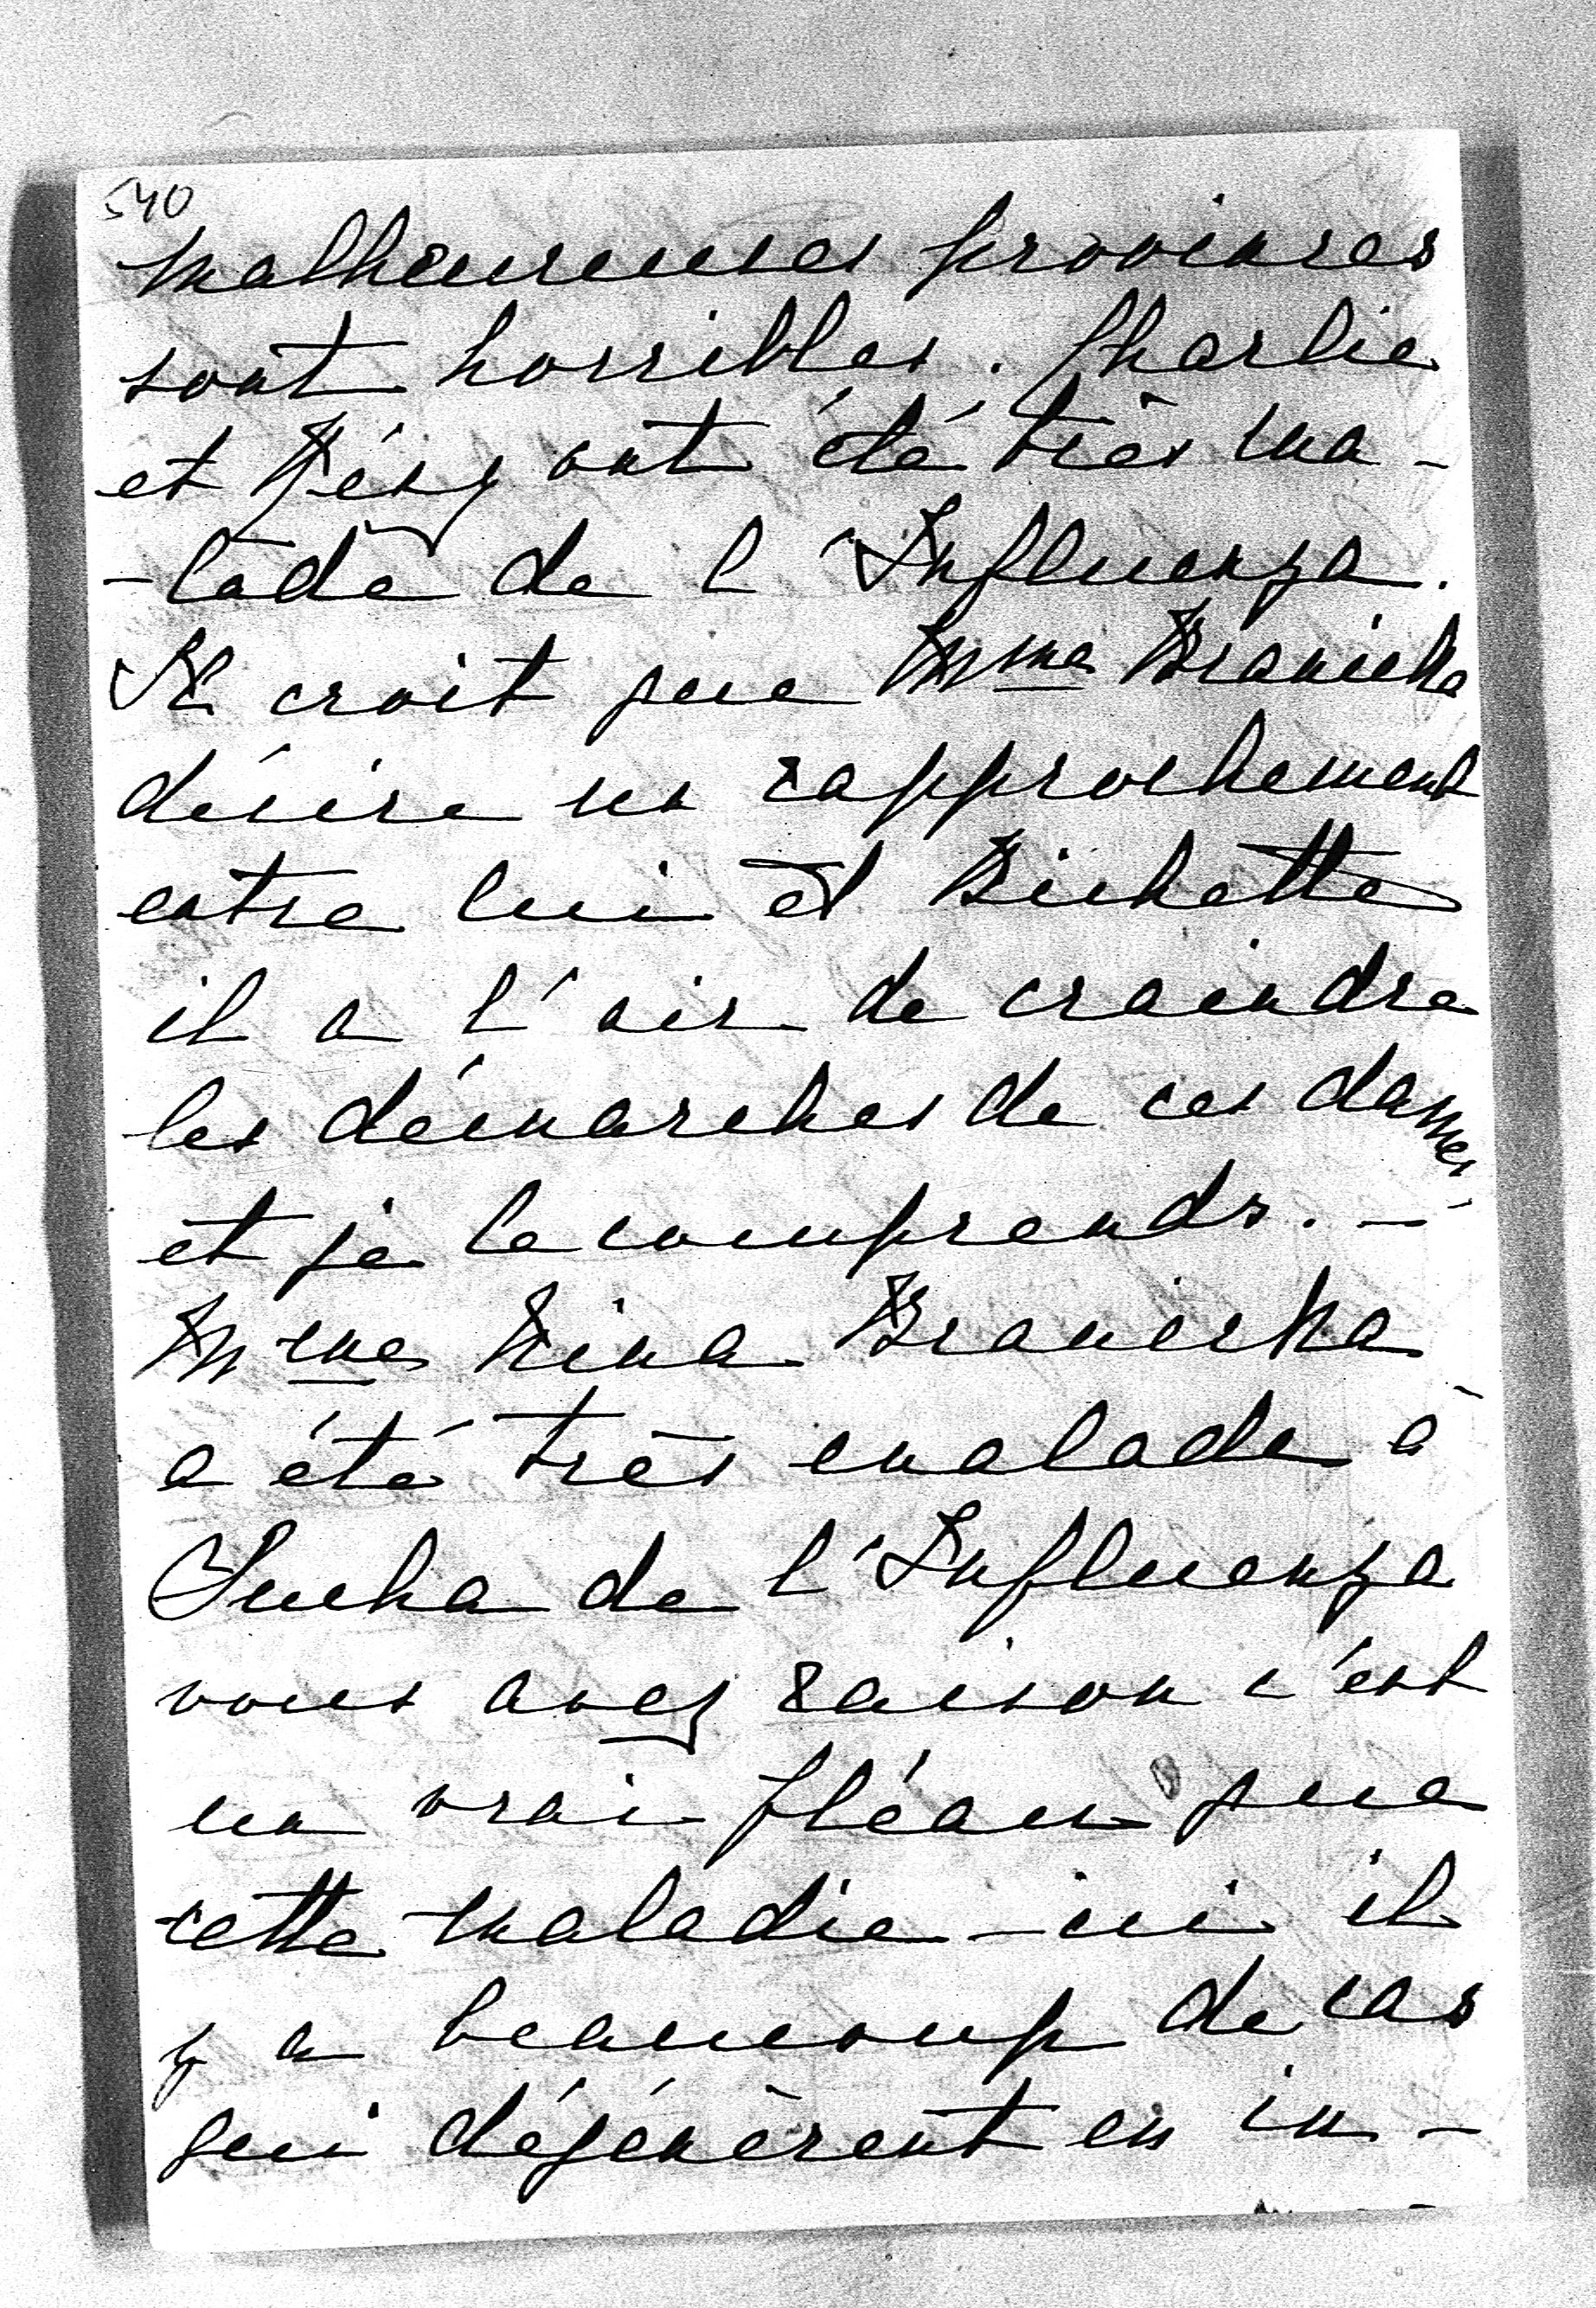 540
malheureuses provinces
sont horribles. Charlie
et Résy ont été très ma-
-lade de l'Influenza.
Il croit que Mme Branicka
désire un rapprochement
entre lui et Bichette
il a l'air de craindre
les démarches de ces dames
et je le comprends. -
Mme Nina Branicka
a été très malade à
Sucha de l'Influenza
vous avez raison c'est
un vrai fléau que
cette maladie - ici il
y a beaucoup de cas
qui dégénèrent en in-